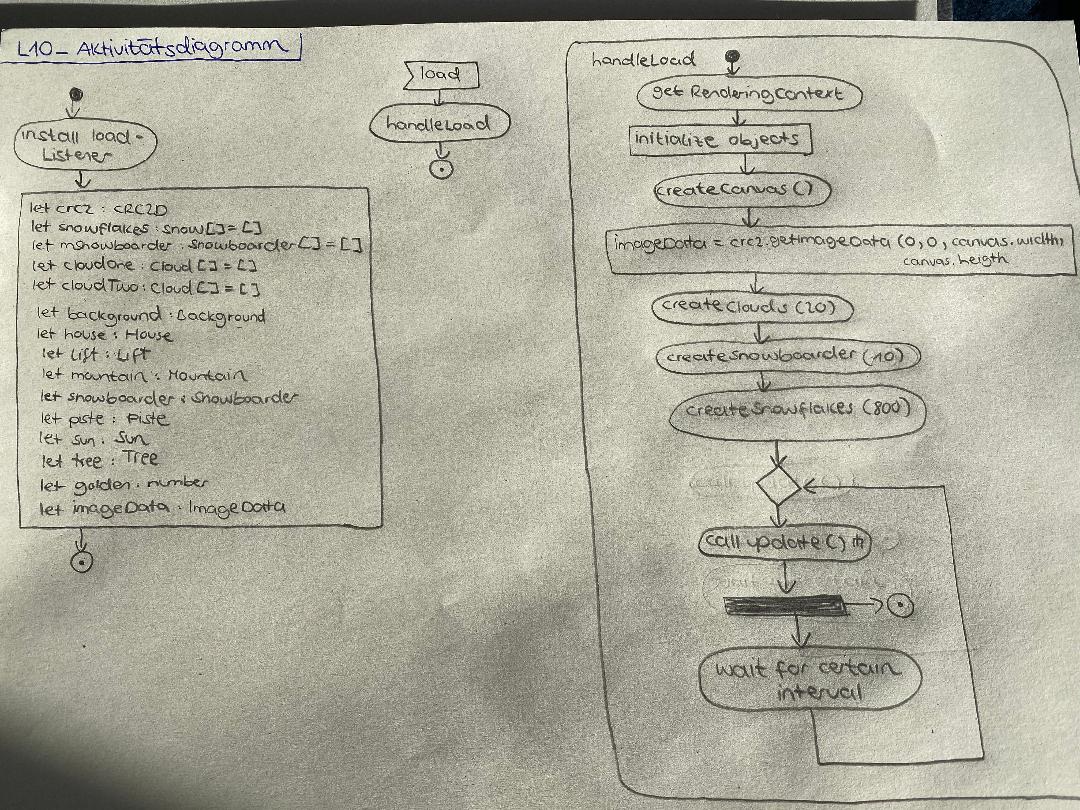 L10_ Aktivitätsdiagramm
install load-
Listener
let crc2 : CRC2D
let snowflakes : snow[] = []
let msnowboarder : snowboarder[] = []
let cloudOne : Cloud[] = []
let cloudTwo : Cloud[] = []
let background : Background
let house : House
let Lift : Lift
let mountain : Mountain
let snowboarder : Snowboarder
let piste : Piste
let sun : Sun
let tree : Tree
let golden : number
let imageData : ImageData
load
handleLoad
handleLoad
get RenderingContext
initialize objects
createCanvas ()
imageData = crc2.getImageData (0,0, canvas.width,
canvas.heigth
createClouds (20)
createSnowboarder (10)
createSnowflakes (800)
call update()
wait for certain
interval